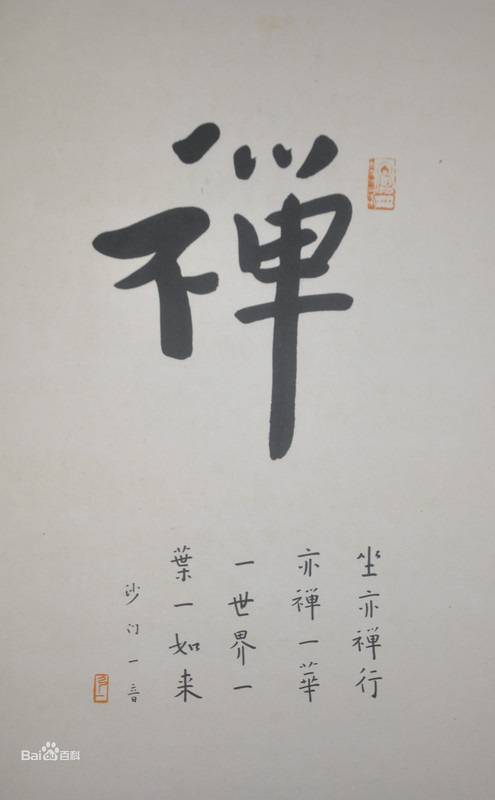 禅
坐亦禪行
亦禪一華
一世界一
葉一如来
沙门一音
Bai百科